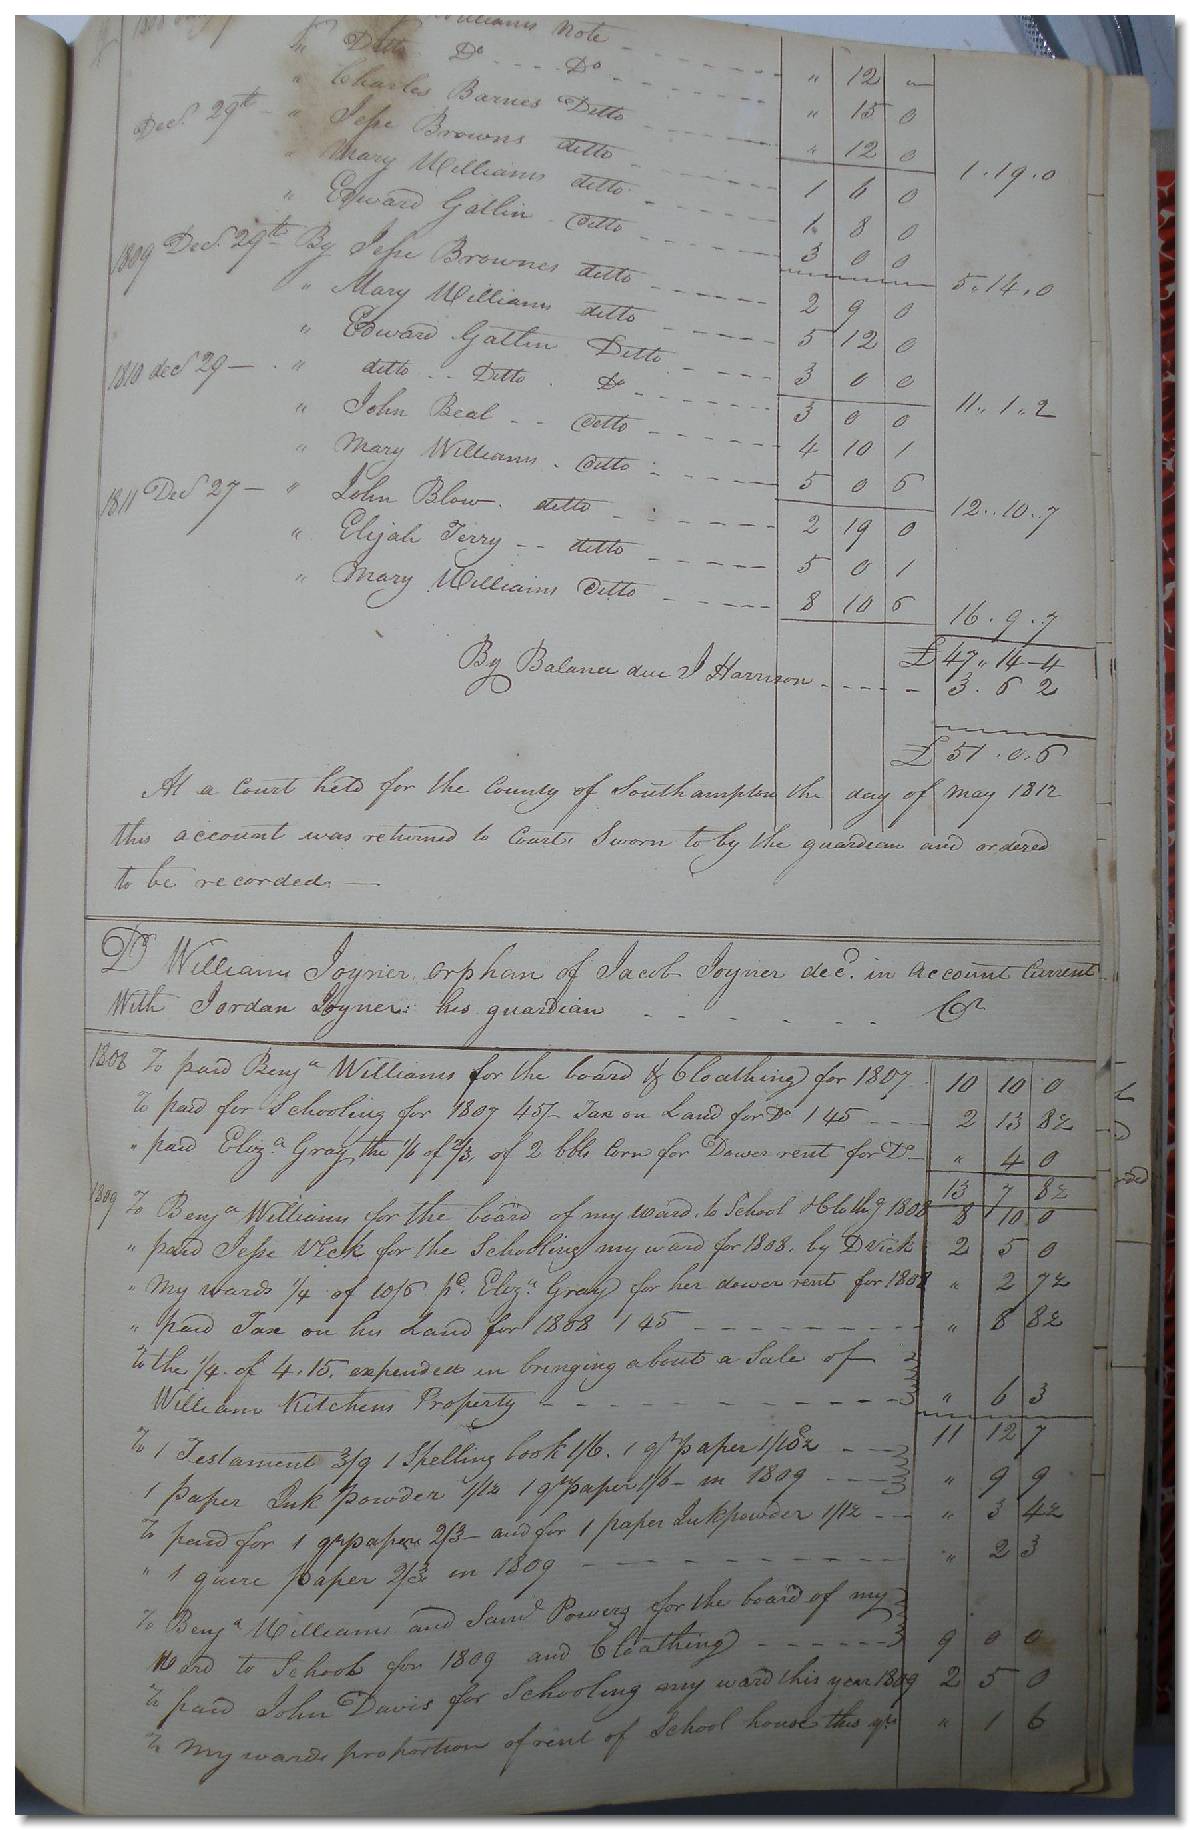 1808 Williams Note " 12 "
" Ditto Do Do " 15 0
" Charles Barnes Ditto " 12 0
1.19.0
Decr. 29th " Jesse Browns ditto 1 6 0
" Mary Williams ditto 1 8 0
" Edward Gatlin Ditto 3 0 0
5.14.0
1809 Decr. 29th By Jesse Brownes ditto 2 9 0
" Mary Williams ditto 5 12 0
" Edward Gatlin Ditto 3 0 0
11.1.2
1810 decr 29 " ditto Ditto Do 3 0 0
" John Beal Ditto 4 10 1
" Mary Williams Ditto 5 0 6
12.10.7
1811 Decr 27 " John Blow ditto 2 19 0
" Elijah Terry ditto 5 0 1
" Mary Williams Ditto 8 10 6
16.9.7
£47"14-4
By Balance due J Harrison 3.6 2
£51.0.6
At a Court held for the County of Southampton the day of May 1812
this account was returned to Court, Sworn to by the guardian and ordered
to be recorded.
Dr William Joyner orphan of Jacob Joyner decd. in account Current
With Jordan Joyner his guardian Cr
1808 To paid Benja Williams for the board & Cloathing for 1807 10 10 0
To paid for Schooling for 1807 45/- Tax on Land for Do 1 45 2 13 8½
" paid Eliza Gray the 1/6 of 2/3 of 2 bbls Corn for Dower rent for Do " 4 0
13 7 8½
1809 To Benja Williams for the board of my ward to School & Clothg 1808 8 10 0
" paid Jesse Vick for the Schooling my ward for 1808 by D Vick 2 5 0
" My wards 1/4 of 10/6 pd. Eliza Gray for her dower rent for 1808 " 2 7½
" paid Tax on his Land for 1808 1 45 " 8 8½
To the 1/4 of 4.15. expended in bringing about a Sale of
William Kitchens Property " 6 3
11 12 7
To 1 Testament 3/9 1 Spelling book 1/6. 1 qr paper 1/10½
1 paper Ink powder 1/1½ 1 qr paper 1/6 - in 1809 " 9 9
To paid for 1 qr paper 2/3 - and for 1 paper Inkpowder 1/1½ " 3 4½
" 1 quire paper 2/3 in 1809 " 2 3
To Benja Williams and Saml Powers for the board of my
Ward to School for 1809 and Cloathing 9 0 0
To paid John Davis for Schooling my ward this year 1809 2 5 0
To My wards proportion of rent of School house this yr " 1 6